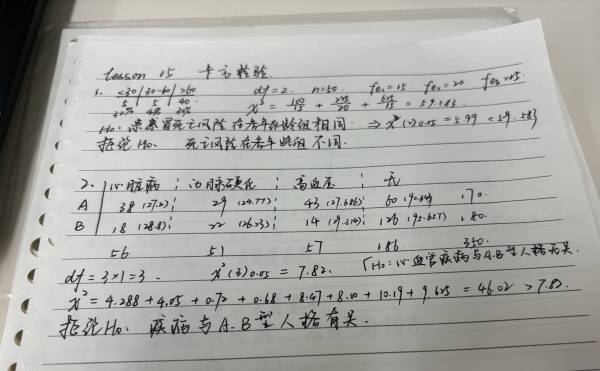 Lesson 15 卡方检验
1. <30 | 30-60 | >60 df=2. n=50 fe₁=15. fe₂=20 fe₃=15.
5 | 5 | 40.
30% 40% 30% χ² = 100/15 + 225/20 + 625/15 = 59.583
H₀: 患寒冒死亡风险在各年龄组相同. ⇒ χ²(2)0.05 = 5.99 < 59.583
拒绝H₀. 死亡风险在各年龄组不同.
2. 心脏病 ; 动脉硬化 ; 高血压 ; 无
A 38 (27.2) ; 29 (24.77) ; 43 (27.686) ; 60 (90.34) ; 170.
B 18 (28.8) ; 22 (26.23) ; 14 (29.314) ; 126 (95.657) ; 180.
56 51 57 186 350.
df = 3×1 = 3. χ²(3)0.05 = 7.82. 「H₀: 心血管疾病与A.B型人格无关.
χ² = 4.288 + 4.05 + 0.72 + 0.68 + 8.47 + 8.00 + 10.19 + 9.625 = 46.02 > 7.82.
拒绝H₀. 疾病与A.B型人格有关.